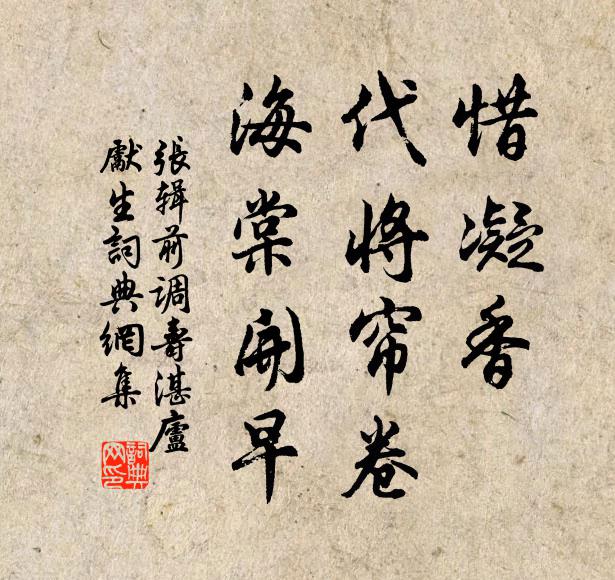 惜凝香
代將帘卷
海棠開早
張辑前调壽湛廬
獻生詞典網集
詞典网印